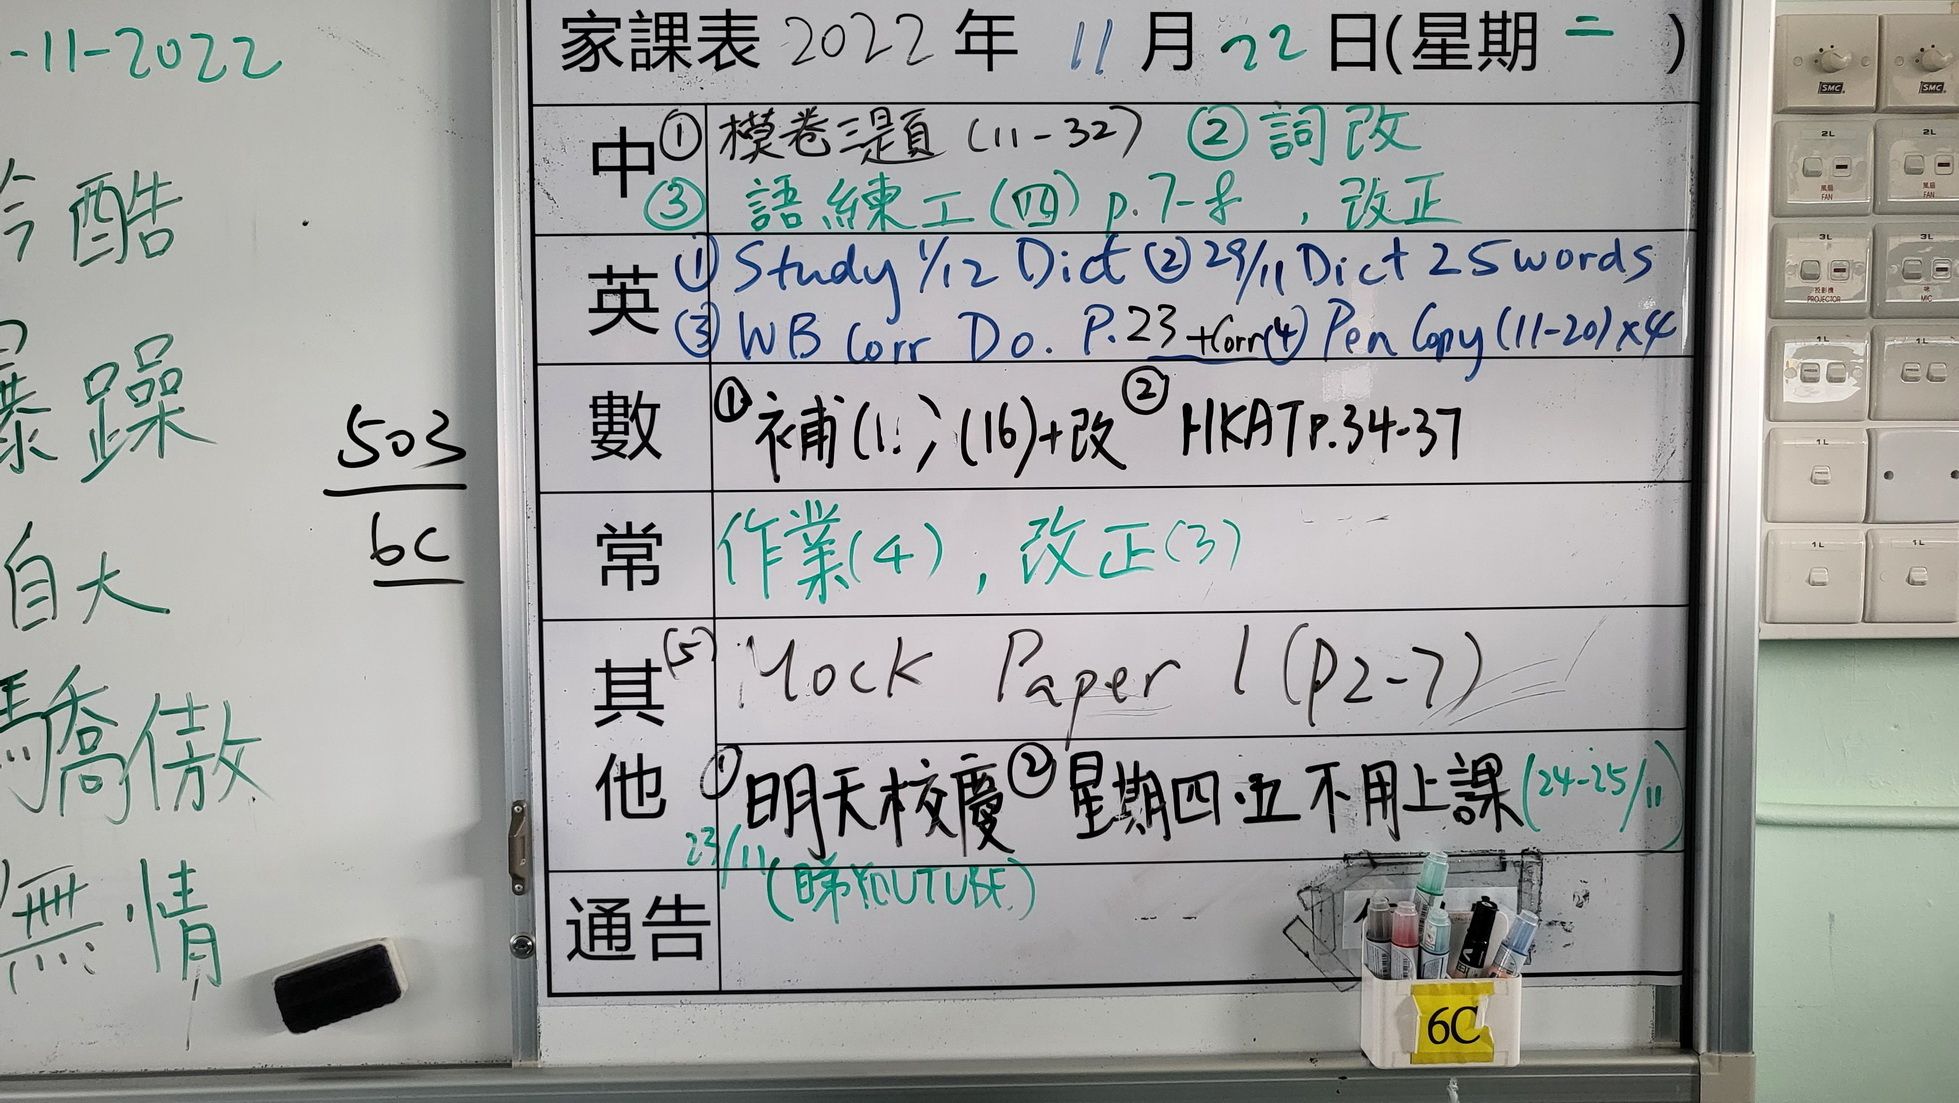 -11-2022
冷酷
暴躁
自大
驕傲
無情
503
6C
家課表 2022 年 11 月 22 日(星期 二 )
中 ① 模卷三題 (11-32) ② 詞改
③ 語練工(四) p.7-8 , 改正
英 ① Study 1/12 Dict ② 29/11 Dict 25 words
③ WB Corr Do. P.23 +Corr ④ Pen Copy (11-20) x4
數 ① 補 (16)+改 ② HKAT P.34-37
常 作業(4) , 改正(3)
其他 (5) Mock Paper 1 (P2-7)
① 明天校慶 ② 星期四.五不用上課 (24-25/11)
23/11 (睇YOUTUBE)
通告
6C
SMC
SMC
2L
2L
風扇
FAN
風扇
FAN
3L
3L
投影機
PROJECTOR
MIC
1L
1L
1L
1L
1L